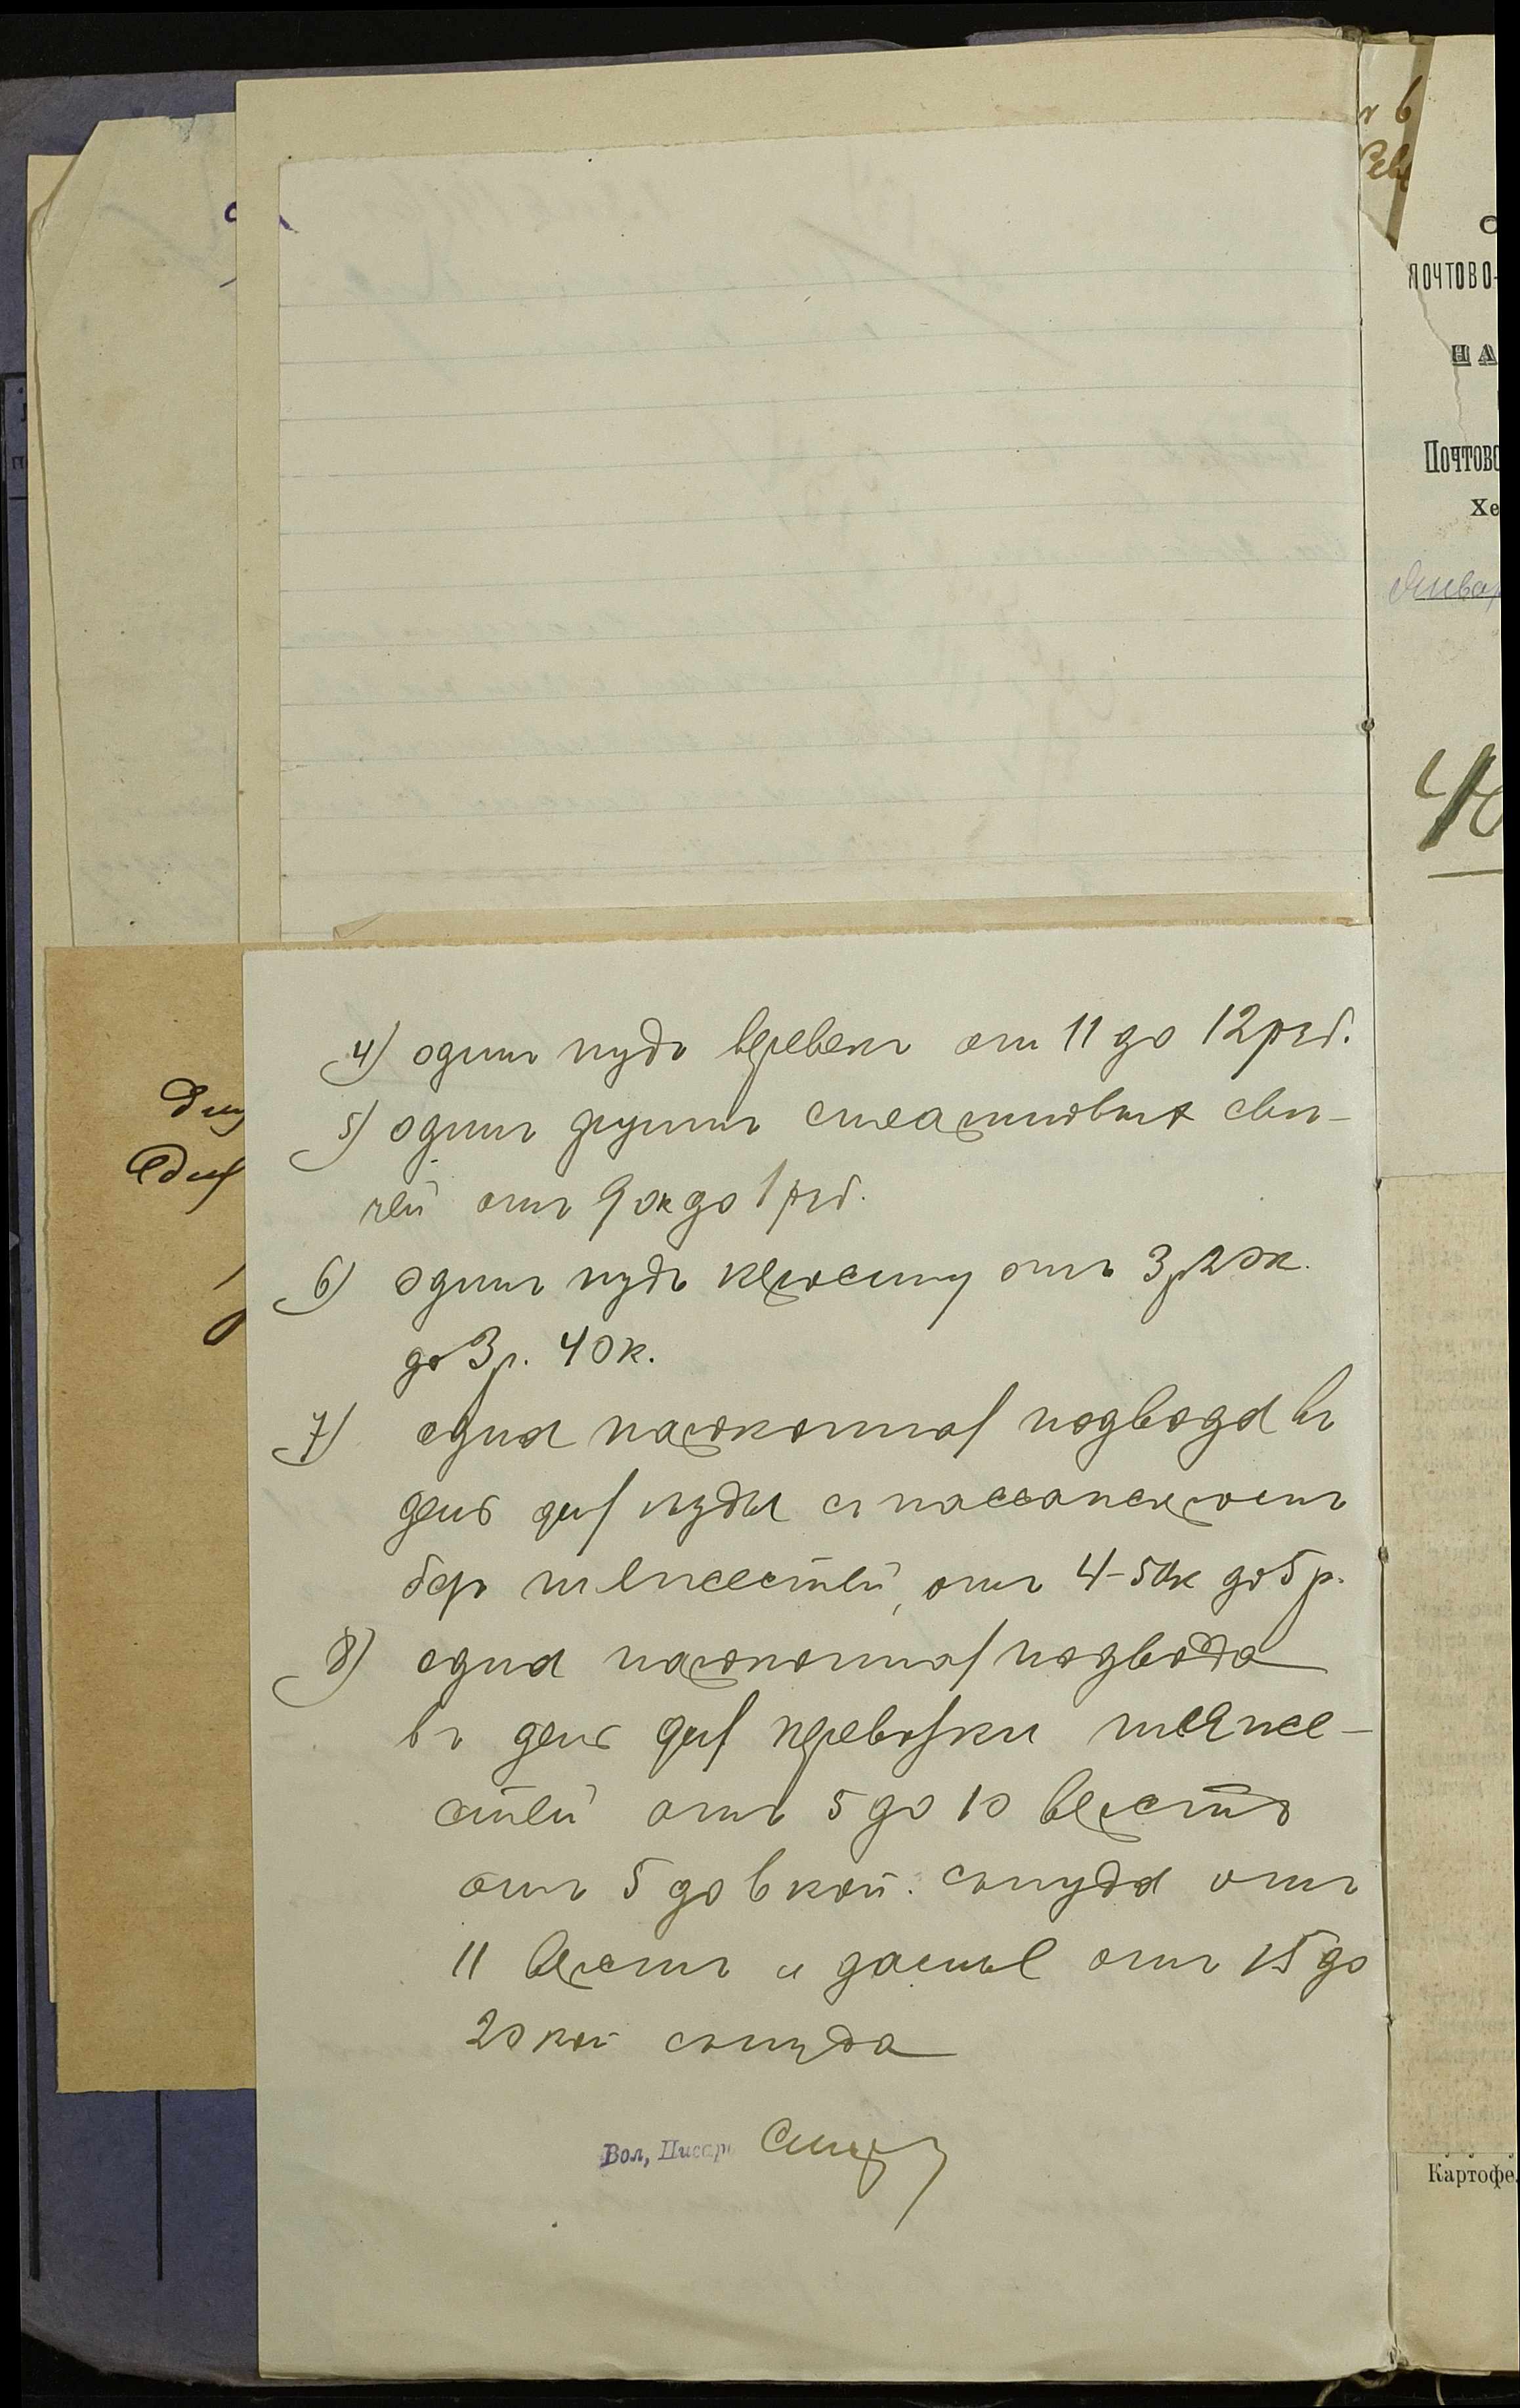 4) одинъ пудъ веревокъ отъ 11 до 12 руб.
5) одинъ фунтъ стеариновыхъ свѣ-
чей отъ 90к до 1 руб.
6) одинъ пудъ керосину отъ 3 р 20к.
до 3 р. 40к.
7) одна пароконная подвода въ
день для ѣзды съ пассажиромъ
безъ тяжестей, отъ 4-50к до 5 р.
8) одна пароконная подвода
въ день для перевозки тяже-
стей отъ 5 до 10 верстъ
отъ 5 до 6 коп. съ пуда отъ
11 верстъ и далѣе отъ 15 до
20 коп съ пуда
Вол. Писарь
ПОЧТОВО-
НА
Почтово
Хе
Январ
Картофе